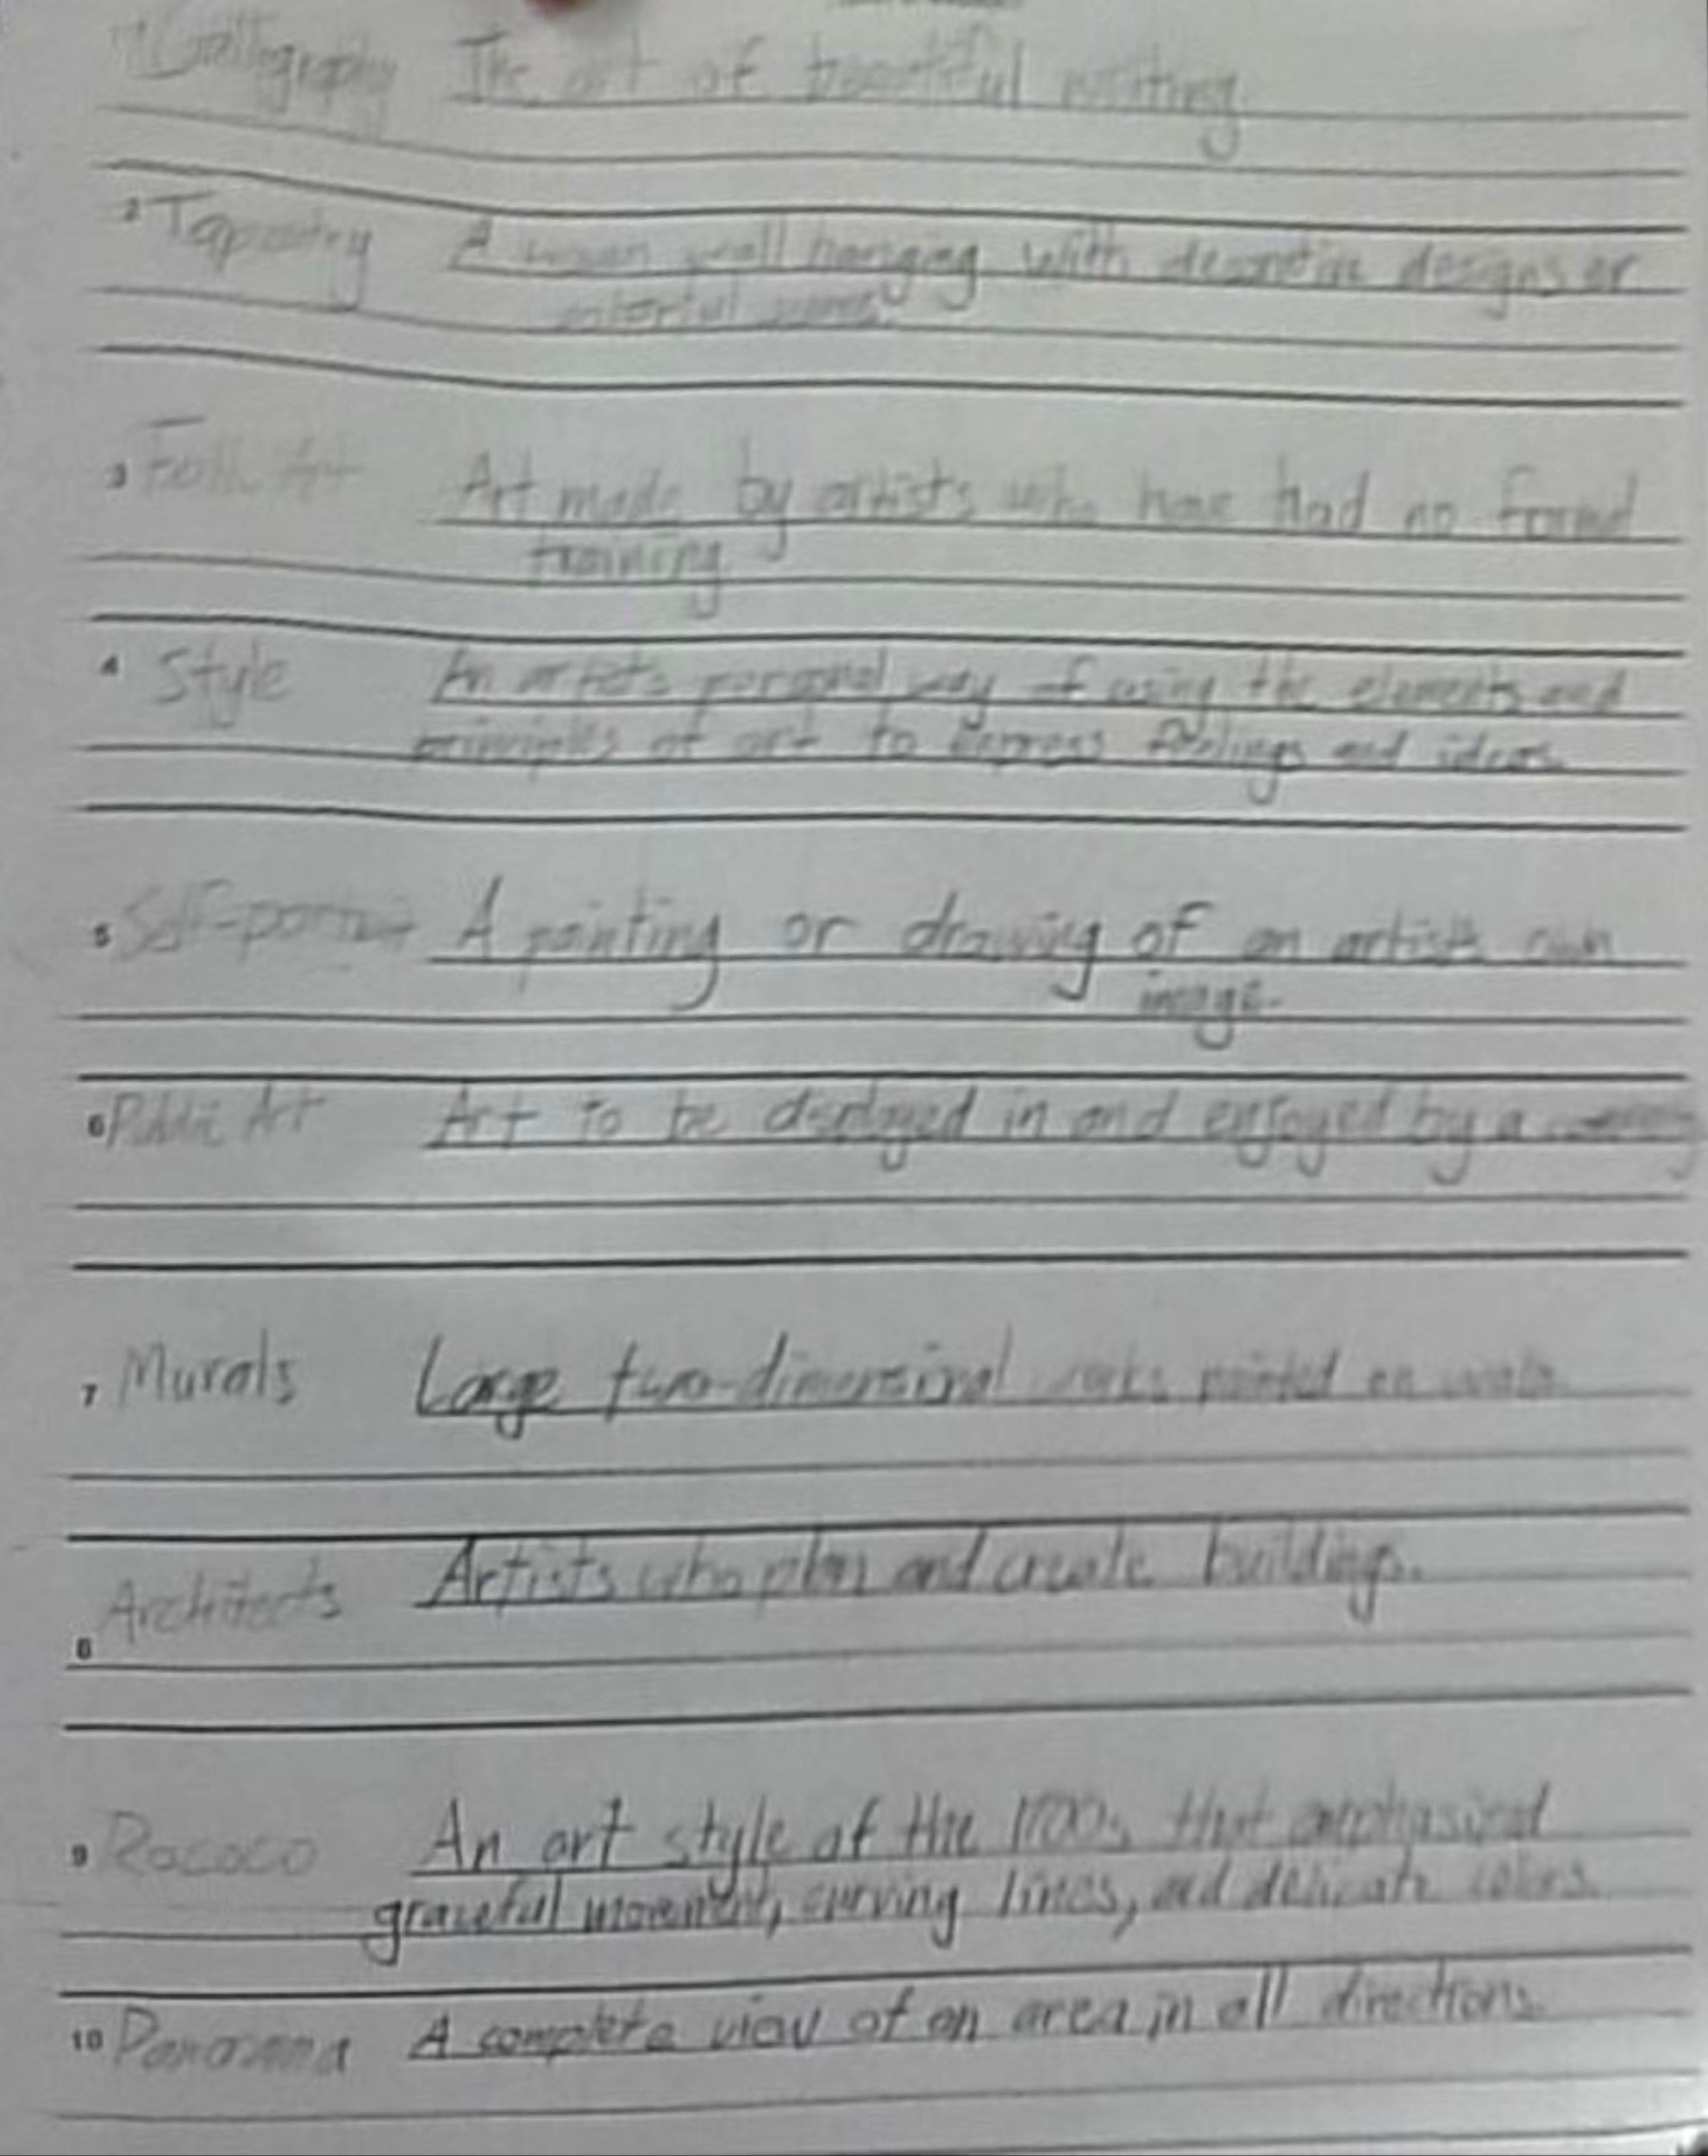 1 Calligraphy The art of beautiful writing.
2 Tapestry A woven wall hanging with decorative designs or
colorful scenes.
3 Folk Art Art made by artists who have had no formal
training
4 Style An artist's personal way of using the elements and
principles of art to express feelings and ideas.
5 Self-portrait A painting or drawing of an artists own
image.
6 Public Art Art to be displayed in and enjoyed by a community
7 Murals Large two-dimensional works painted on walls.
8 Architects Artists who plan and create buildings.
9 Rococo An art style of the 1700s that emphasized
graceful movement, curving lines, and delicate colors.
10 Panorama A complete view of an area in all directions.